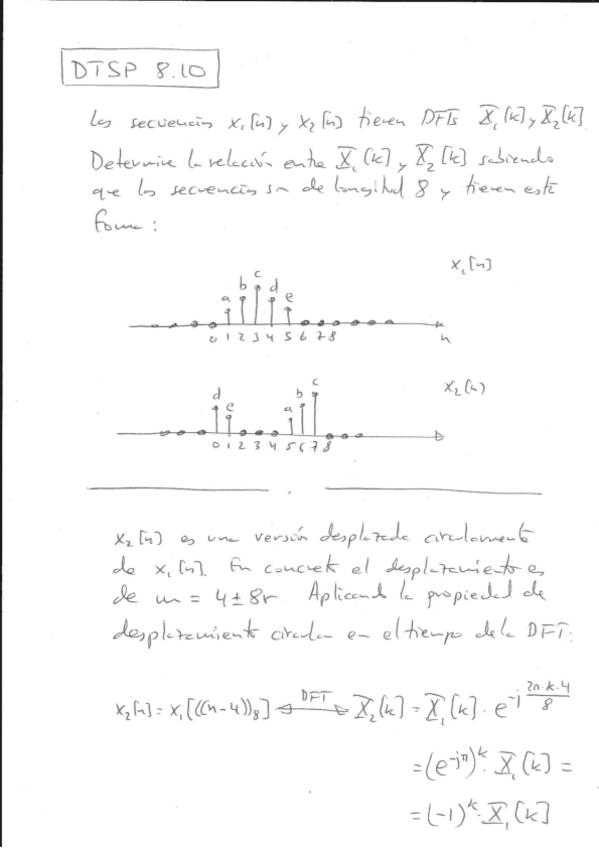 DTSP 8.10
Las secuencias x₁[n] y x₂[n] tienen DFTs X̄₁[k] y X̄₂[k]
Determine la relación entre X̄₁[k] y X̄₂[k] sabiendo
que las secuencias son de longitud 8 y tienen esta
forma:
x₁[n]
a b c d e
0 1 2 3 4 5 6 7 8
n
x₂[n]
d e a b c
0 1 2 3 4 5 6 7 8
x₂[n] es una versión desplazada circularmente
de x₁[n]. En concreto el desplazamiento es
de m = 4 ± 8r Aplicando la propiedad de
desplazamiento circular en el tiempo de la DFT:
x₂[n] = x₁[((n-4))₈] <—DFT—> X̄₂[k] = X̄₁[k] · e^{-j 2π·k·4/8}
= (e^{-jπ})^k · X̄₁[k] =
= (-1)^k · X̄₁[k]